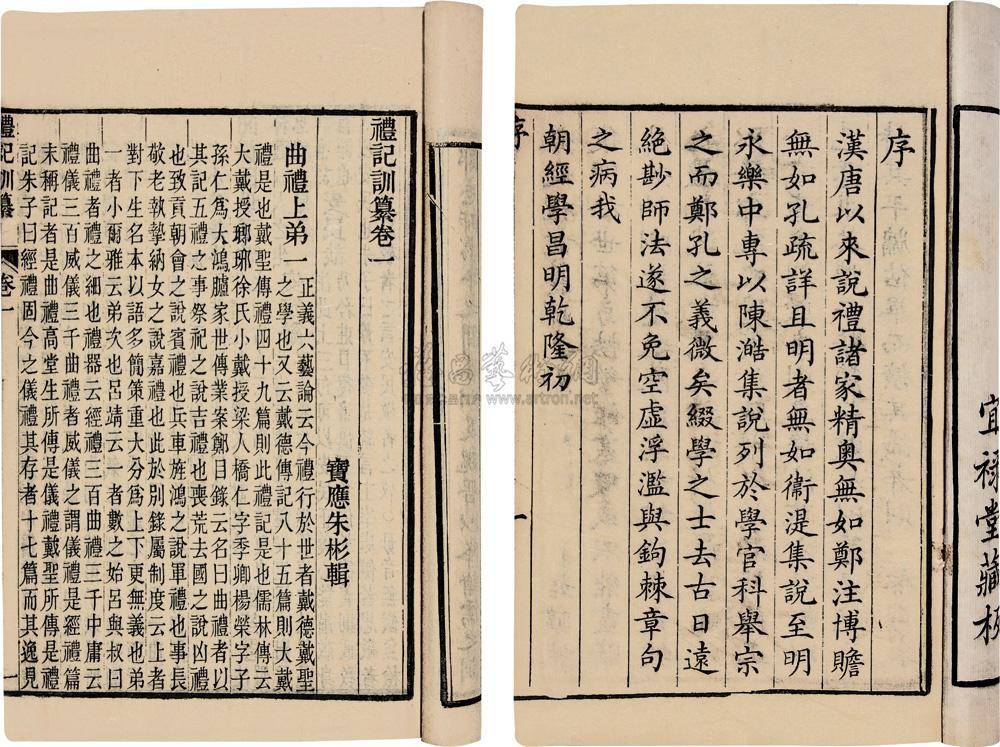 宜祿堂藏板
序
漢唐以來說禮諸家精奧無如鄭注博贍
無如孔疏詳且明者無如衞湜集說至明
永樂中專以陳澔集說列於學官科舉宗
之而鄭孔之義微矣綴學之士去古日遠
絕尠師法遂不免空虛浮濫與鉤棘章句
之病我
朝經學昌明乾隆初
序
一
禮記訓纂卷一
寶應朱彬輯
曲禮上弟一
正義六藝論云今禮行於世者戴德戴聖
之學也又云戴德傳記八十五篇則大戴
禮是也戴聖傳禮四十九篇則此禮記是也儒林傳云
大戴授瑯琊徐氏小戴授梁人橋仁字季卿楊榮字子
孫仁爲大鴻臚家世傳業案鄭目錄云名曰曲禮者以
其記五禮之事祭祀之說吉禮也喪荒去國之說凶禮
也致貢朝會之說賓禮也兵車旌鴻之說軍禮也事長
敬老執摯納女之說嘉禮也此於別錄屬制度云上者
對下生名本以語多簡策重大分爲上下更無義也弟
一者小爾雅云弟次也呂靖云一者數之始呂與叔曰
曲禮者禮之細也禮器云經禮三百曲禮三千中庸云
禮儀三百威儀三千曲禮者威儀之謂儀禮是經禮篇
末稱記者是曲禮高堂生所傳是儀禮戴聖所傳是禮
記朱子曰經禮固今之儀禮其存者十七篇而其逸見
禮記訓纂
卷一
一
www.artron.net